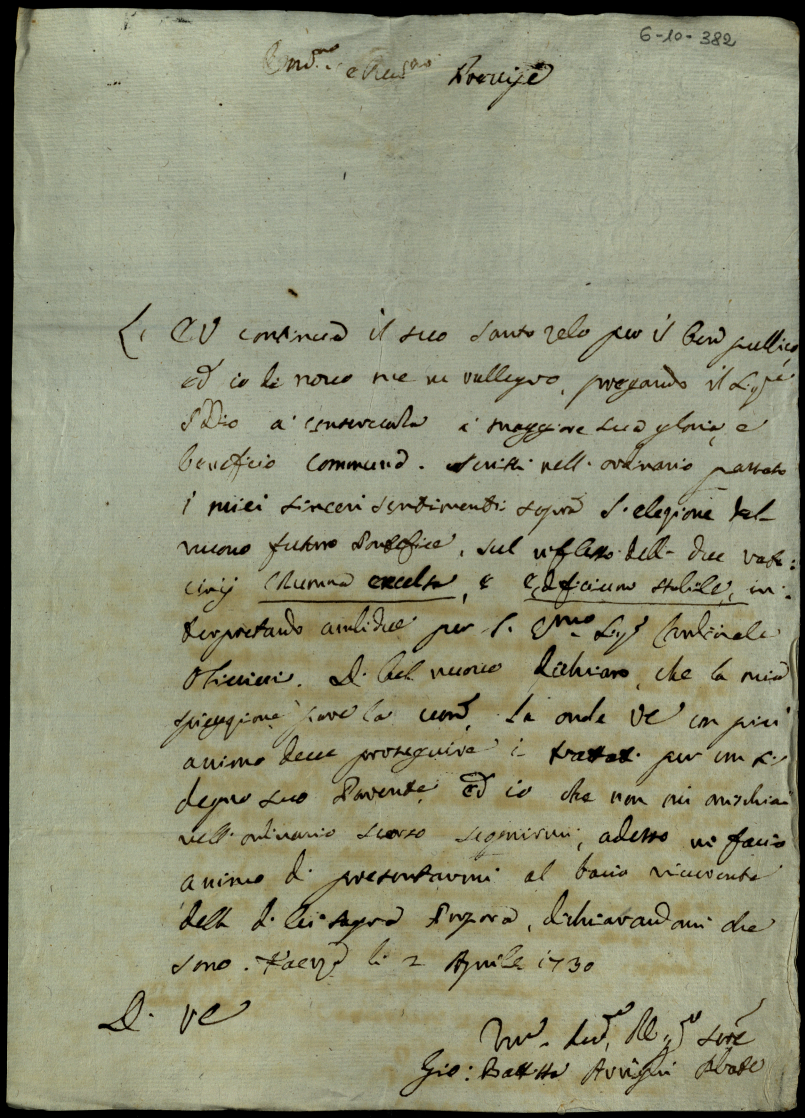 6-10-382
e Principe
VE continua il suo santo zelo per il ben publico,
ed io di novo me ne rallegro, pregando il Sigre
Iddio a conservarla a maggiore sua gloria, e
beneficio commune. Scrissi nell'ordinario passato
i miei sinceri sentimenti sopra l'elezione del
nuovo futuro Pontefice, sul riflesso delli due vati:
cinij Columna excelsa, e Edificium stabile, in:
terpretando ambidue per l'Emo Sigr Cardinale
Olivieri. Di bel nuovo dichiaro, che la mia
spiegazione sara la vera, la onde VE con più
animo deve proseguire i trattati per un sì
degno suo Parente, ed io che non mi arrischiai
nell'ordinario scorso segnarmi, adesso mi facio
animo di presentarmi al bacio riverente
della di lei sagra Porpora, dichiarandomi che
sono. Faenza li 2 Aprile 1730
D. VE
Umo Devmo Obligmo Serre
Gio: Battista Abate